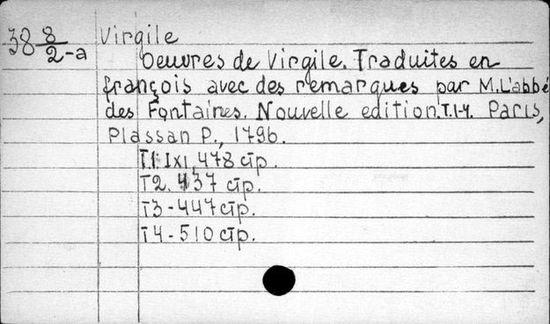 38 8/2-a Virgile
Oeuvres de Virgile. Traduites en
françois avec des remarques par M.L'abbé
des Fontaines. Nouvelle edition.T.1-4. Paris,
Plassan P., 1796.
T.1. 478 стр.
T2. 437 стр.
T3-447 стр.
T4-510 стр.